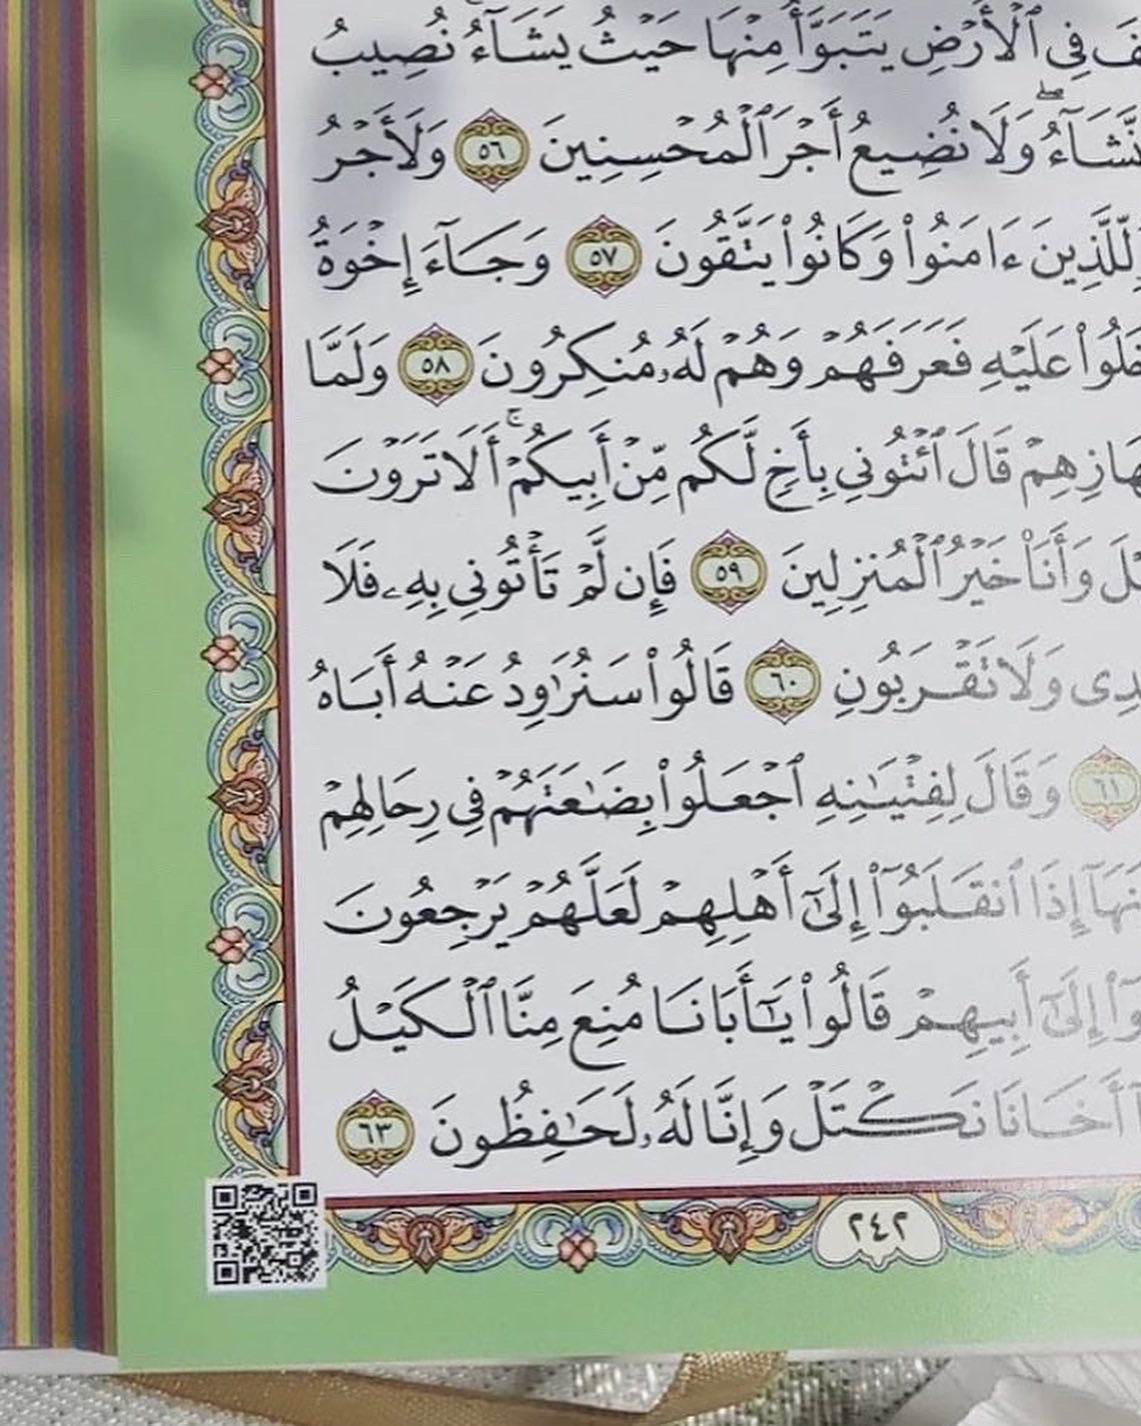 فِي ٱلْأَرْضِ يَتَبَوَّأُ مِنْهَا حَيْثُ يَشَآءُ نُصِيبُ
نَّشَآءُ ۖ وَلَا نُضِيعُ أَجْرَ ٱلْمُحْسِنِينَ ٥٦ وَلَأَجْرُ
لِّلَّذِينَ ءَامَنُوا۟ وَكَانُوا۟ يَتَّقُونَ ٥٧ وَجَآءَ إِخْوَةُ
عَلَيْهِ فَعَرَفَهُمْ وَهُمْ لَهُۥ مُنكِرُونَ ٥٨ وَلَمَّا
قَالَ ٱئْتُونِي بِأَخٍ لَّكُم مِّنْ أَبِيكُمْ ۚ أَلَا تَرَوْنَ
وَأَنَا۠ خَيْرُ ٱلْمُنزِلِينَ ٥٩ فَإِن لَّمْ تَأْتُونِي بِهِۦ فَلَا
وَلَا تَقْرَبُونِ ٦٠ قَالُوا۟ سَنُرَٰوِدُ عَنْهُ أَبَاهُ
٦١ وَقَالَ لِفِتْيَـٰنِهِ ٱجْعَلُوا۟ بِضَـٰعَتَهُمْ فِي رِحَالِهِمْ
إِذَا ٱنقَلَبُوٓا۟ إِلَىٰٓ أَهْلِهِمْ لَعَلَّهُمْ يَرْجِعُونَ
إِلَىٰٓ أَبِيهِمْ قَالُوا۟ يَـٰٓأَبَانَا مُنِعَ مِنَّا ٱلْكَيْلُ
أَخَانَا نَكْتَلْ وَإِنَّا لَهُۥ لَحَـٰفِظُونَ ٦٣
٢٤٢